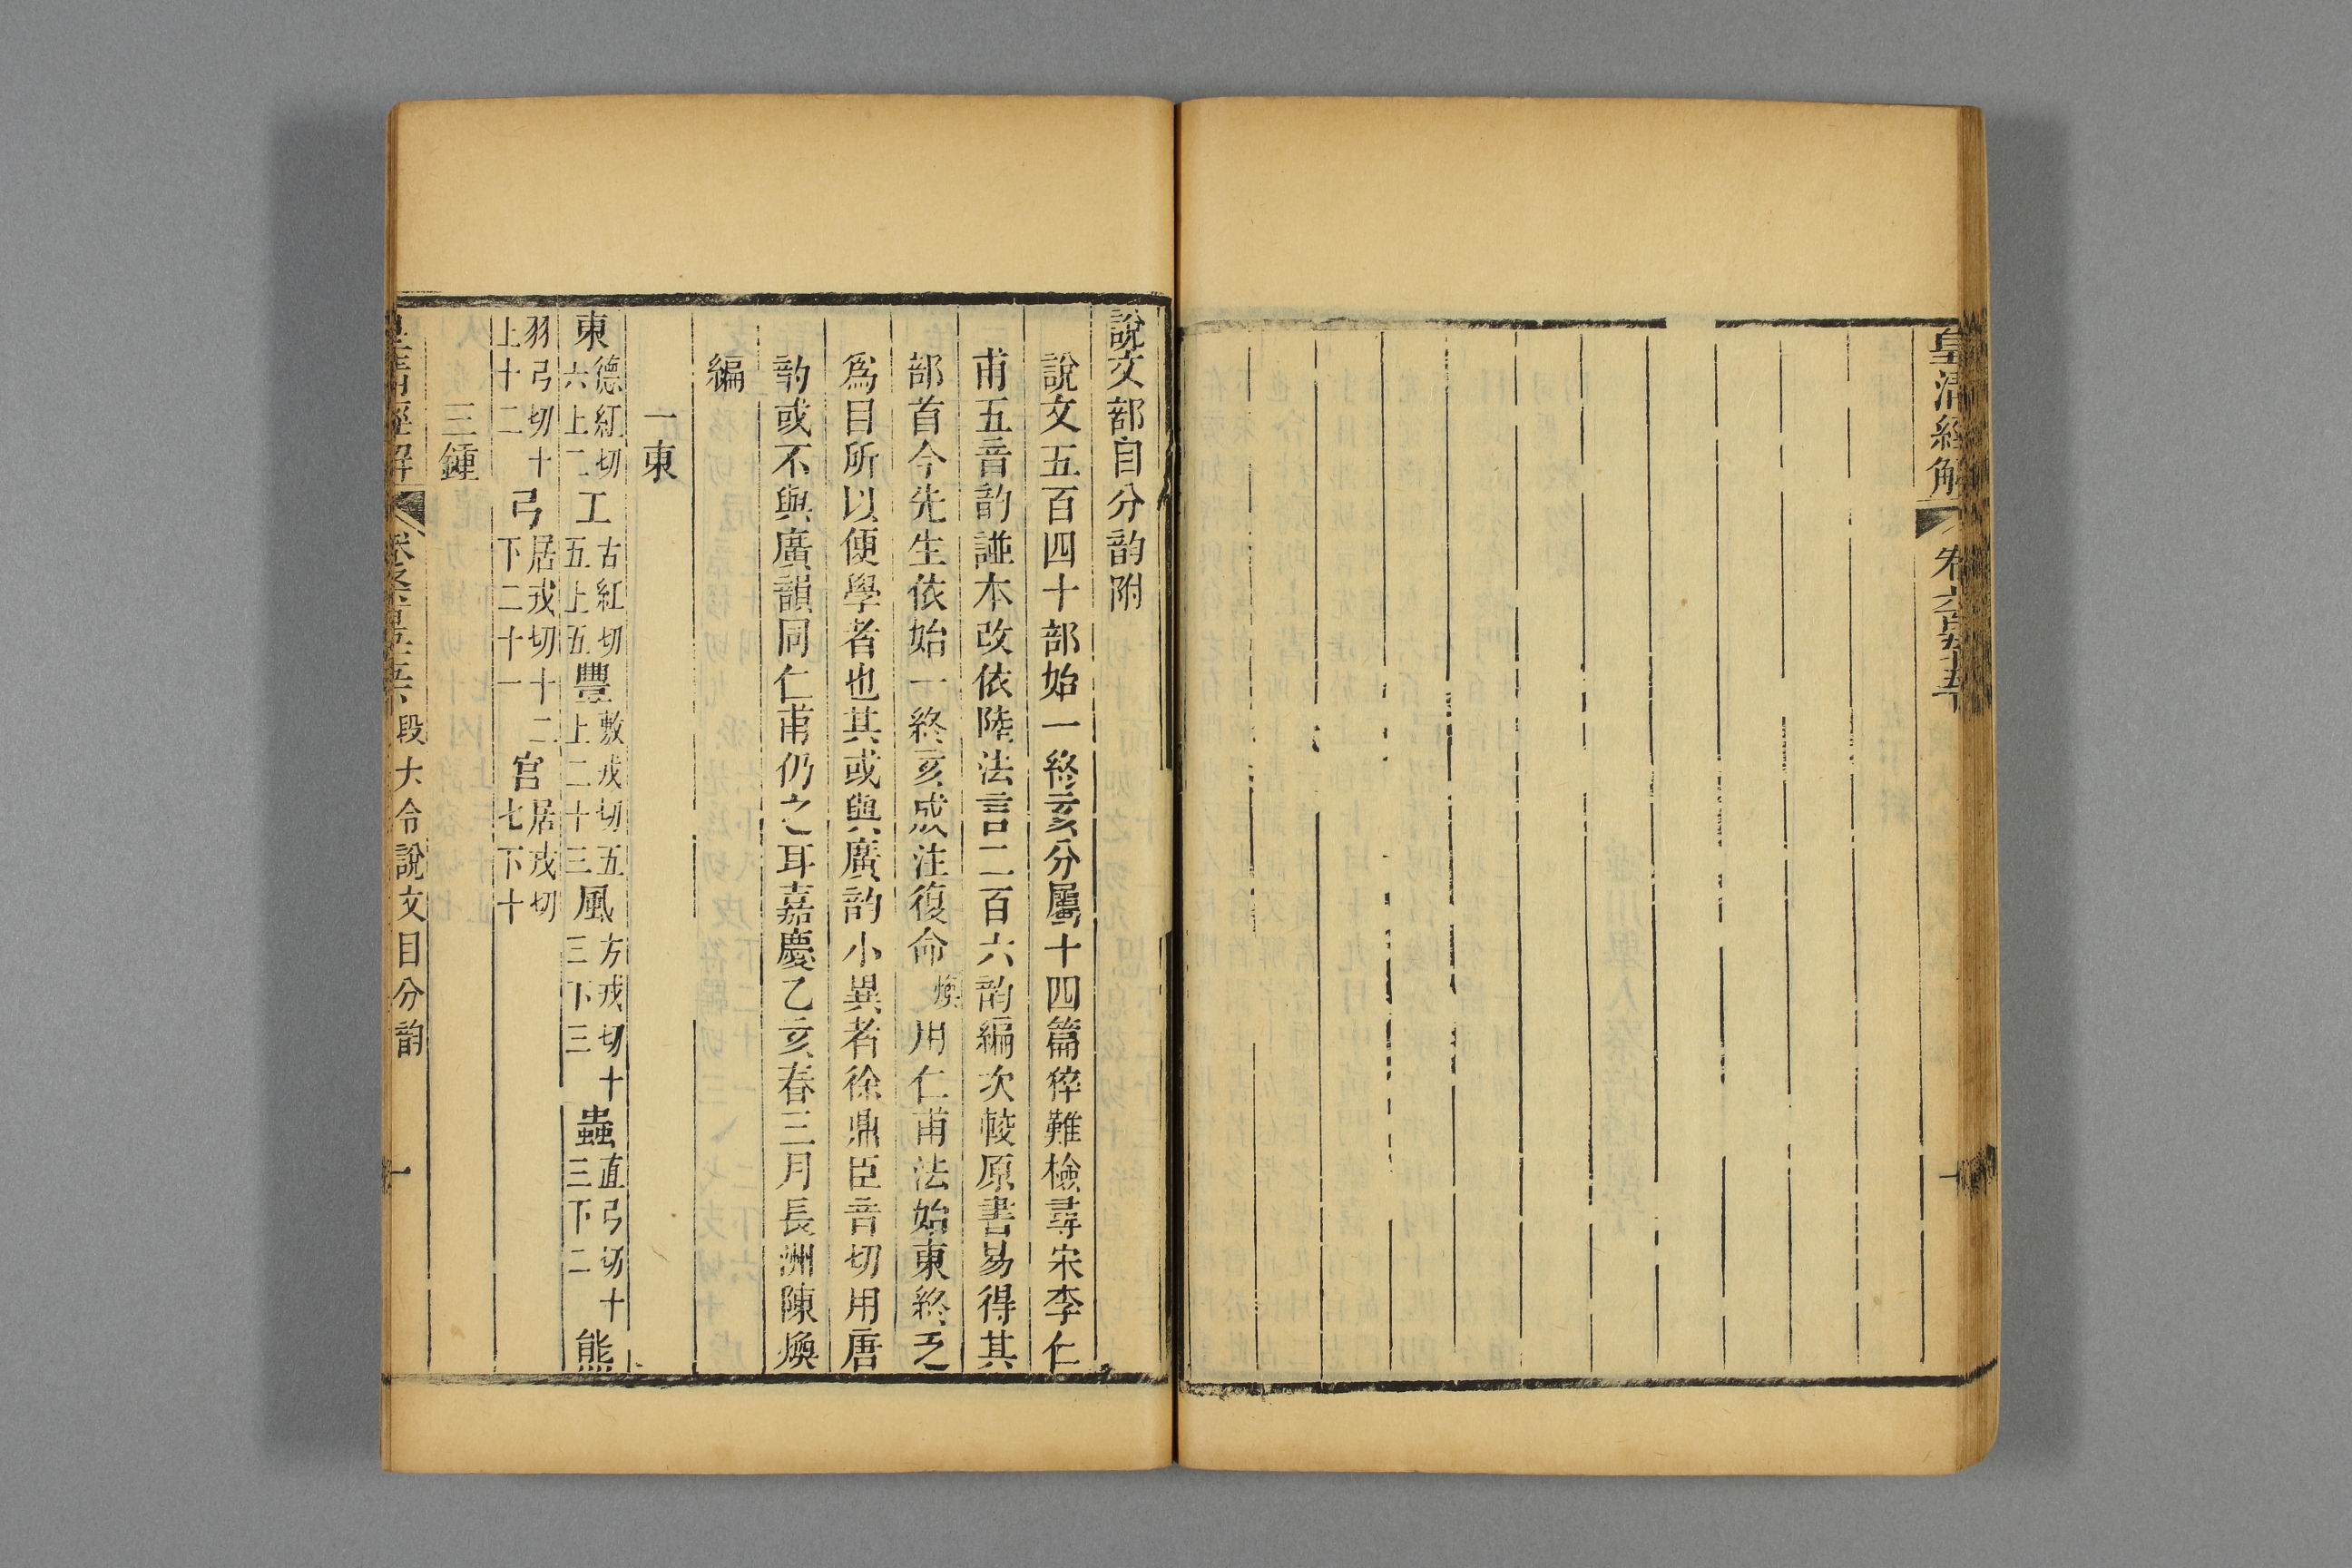 皇清經解 卷六百五十五下 一
說文部目分韵附
說文五百四十部始一終亥分屬十四篇猝難檢尋宋李仁
甫五音韵譜本改依陸法言二百六韵編次較原書易得其
部首今先生依始一終亥成注復命煥用仁甫法始東終乏
爲目所以便學者也其或與廣韵小異者徐鼎臣音切用唐
韵或不與廣韻同仁甫仍之耳嘉慶乙亥春三月長洲陳煥
編
一東
東德紅切六上二工古紅切五上五豐敷戎切五上二十三風方戎切十三下三蟲直弓切十三下二熊
羽弓切十上十二弓居戎切十二下二十一宮居戎切七下十
三鍾
皇清經解 段大令說文目分韵 一